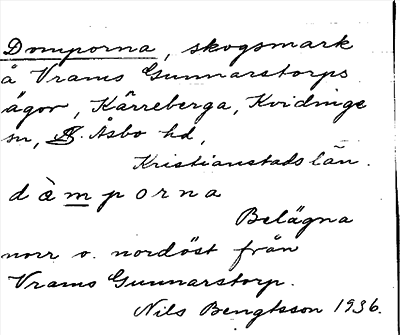 Domporna, skogsmark
å Vrams Gunnarstorps
ägor, Kärreberga, Kvidinge
sn, S. Åsbo hd,
Kristianstads län.
dȧmporna
Belägna
norr o. nordöst från
Vrams Gunnarstorp.
Nils Bengtsson 1936.